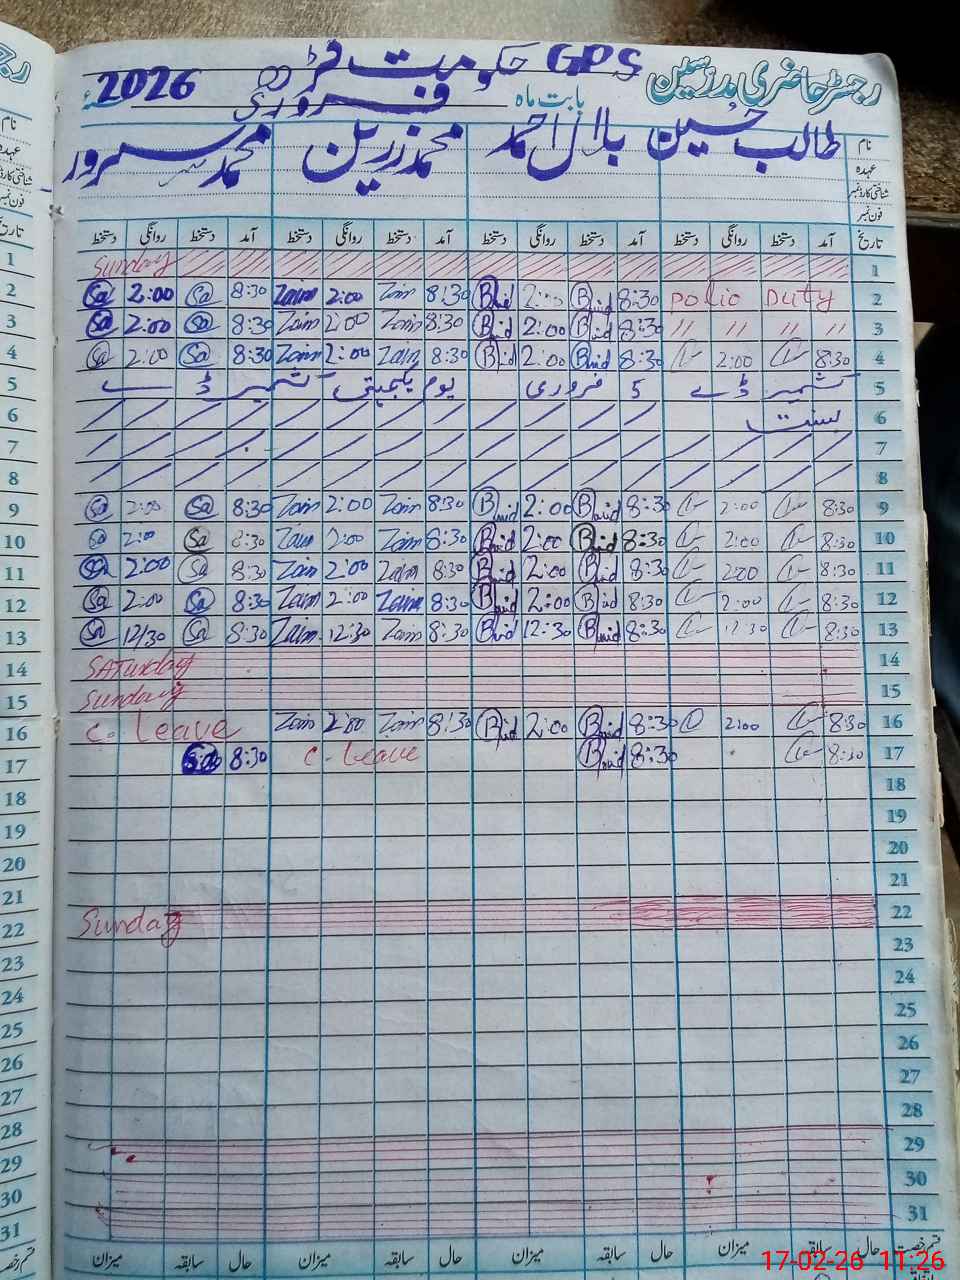 GPS حکومت
رجسٹر حاضری مدرسین بابت ماہ فروری 2026ء
نام طالب حسین بلال احمد محمد زرین محمد سرور
عہدہ
شناختی کارڈ نمبر
فون نمبر
تاریخ آمد دستخط روانگی دستخط آمد دستخط روانگی دستخط آمد دستخط روانگی دستخط آمد دستخط روانگی دستخط
1 Sunday 1
2 Sa 2:00 Sa 8:30 Zain 2:00 Zain 8:30 2:00 8:30 Polio Duty 2
3 Sa 2:00 Sa 8:30 Zain 2:00 Zain 8:30 2:00 8:30 " " " " 3
4 Sa 2:00 Sa 8:30 Zain 2:00 Zain 8:30 2:00 8:30 2:00 8:30 4
5 کشمیر ڈے 5 فروری یوم یکجہتی کشمیر ڈے 5
6 بسنت
7 7
8 8
9 Sa 2:00 Sa 8:30 Zain 2:00 Zain 8:30 2:00 8:30 2:00 8:30 9
10 Sa 2:00 Sa 8:30 Zain 2:00 Zain 8:30 2:00 8:30 2:00 8:30 10
11 Sa 2:00 Sa 8:30 Zain 2:00 Zain 8:30 2:00 8:30 2:00 8:30 11
12 Sa 2:00 Sa 8:30 Zain 2:00 Zain 8:30 2:00 8:30 2:00 8:30 12
13 Sa 12/30 Sa 8:30 Zain 12:30 Zain 8:30 12:30 8:30 12:30 8:30 13
14 Saturday 14
15 Sunday 15
16 C. Leave Zain 2:00 Zain 8:30 2:00 8:30 2:00 8:30 16
17 Sa 8:30 C. Leave 8:30 8:30 17
18 18
19 19
20 20
21 21
22 Sunday 22
23 23
24 24
25 25
26 26
27 27
28 28
29 29
30 30
31 31
قسم رخصت حال سابقہ میزان حال سابقہ میزان حال سابقہ میزان حال سابقہ میزان
17-02-26 11:26